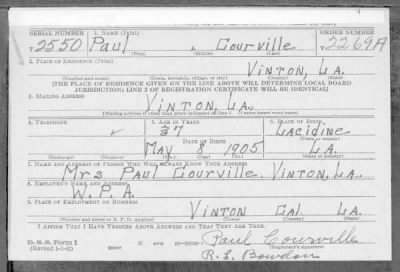 SERIAL NUMBER
1. NAME (Print)
ORDER NUMBER
T 2550 Paul Courville T2269A
(First) (Middle) (Last)
2. PLACE OF RESIDENCE (Print)
VINTON, LA.
(Number and street) (Town, township, village, or city) (County) (State)
[THE PLACE OF RESIDENCE GIVEN ON THE LINE ABOVE WILL DETERMINE LOCAL BOARD
JURISDICTION; LINE 2 OF REGISTRATION CERTIFICATE WILL BE IDENTICAL]
3. MAILING ADDRESS
VINTON, LA.
[Mailing address if other than place indicated on line 2. If same insert word same]
4. TELEPHONE
5. AGE IN YEARS
6. PLACE OF BIRTH
37
Lacidine
DATE OF BIRTH
(Town or county)
MAY 8 1905 LA.
(Exchange) (Number) (Mo.) (Day) (Yr.) (State or country)
7. NAME AND ADDRESS OF PERSON WHO WILL ALWAYS KNOW YOUR ADDRESS
Mrs Paul Courville. VINTON, LA.
8. EMPLOYER'S NAME AND ADDRESS
W.P.A.
9. PLACE OF EMPLOYMENT OR BUSINESS
VINTON Cal. LA.
(Number and street or R. F. D. number) (Town) (County) (State)
I AFFIRM THAT I HAVE VERIFIED ABOVE ANSWERS AND THAT THEY ARE TRUE.
D. S. S. Form 1
(Revised 1-1-42)
Paul Courville
(Registrant's signature)